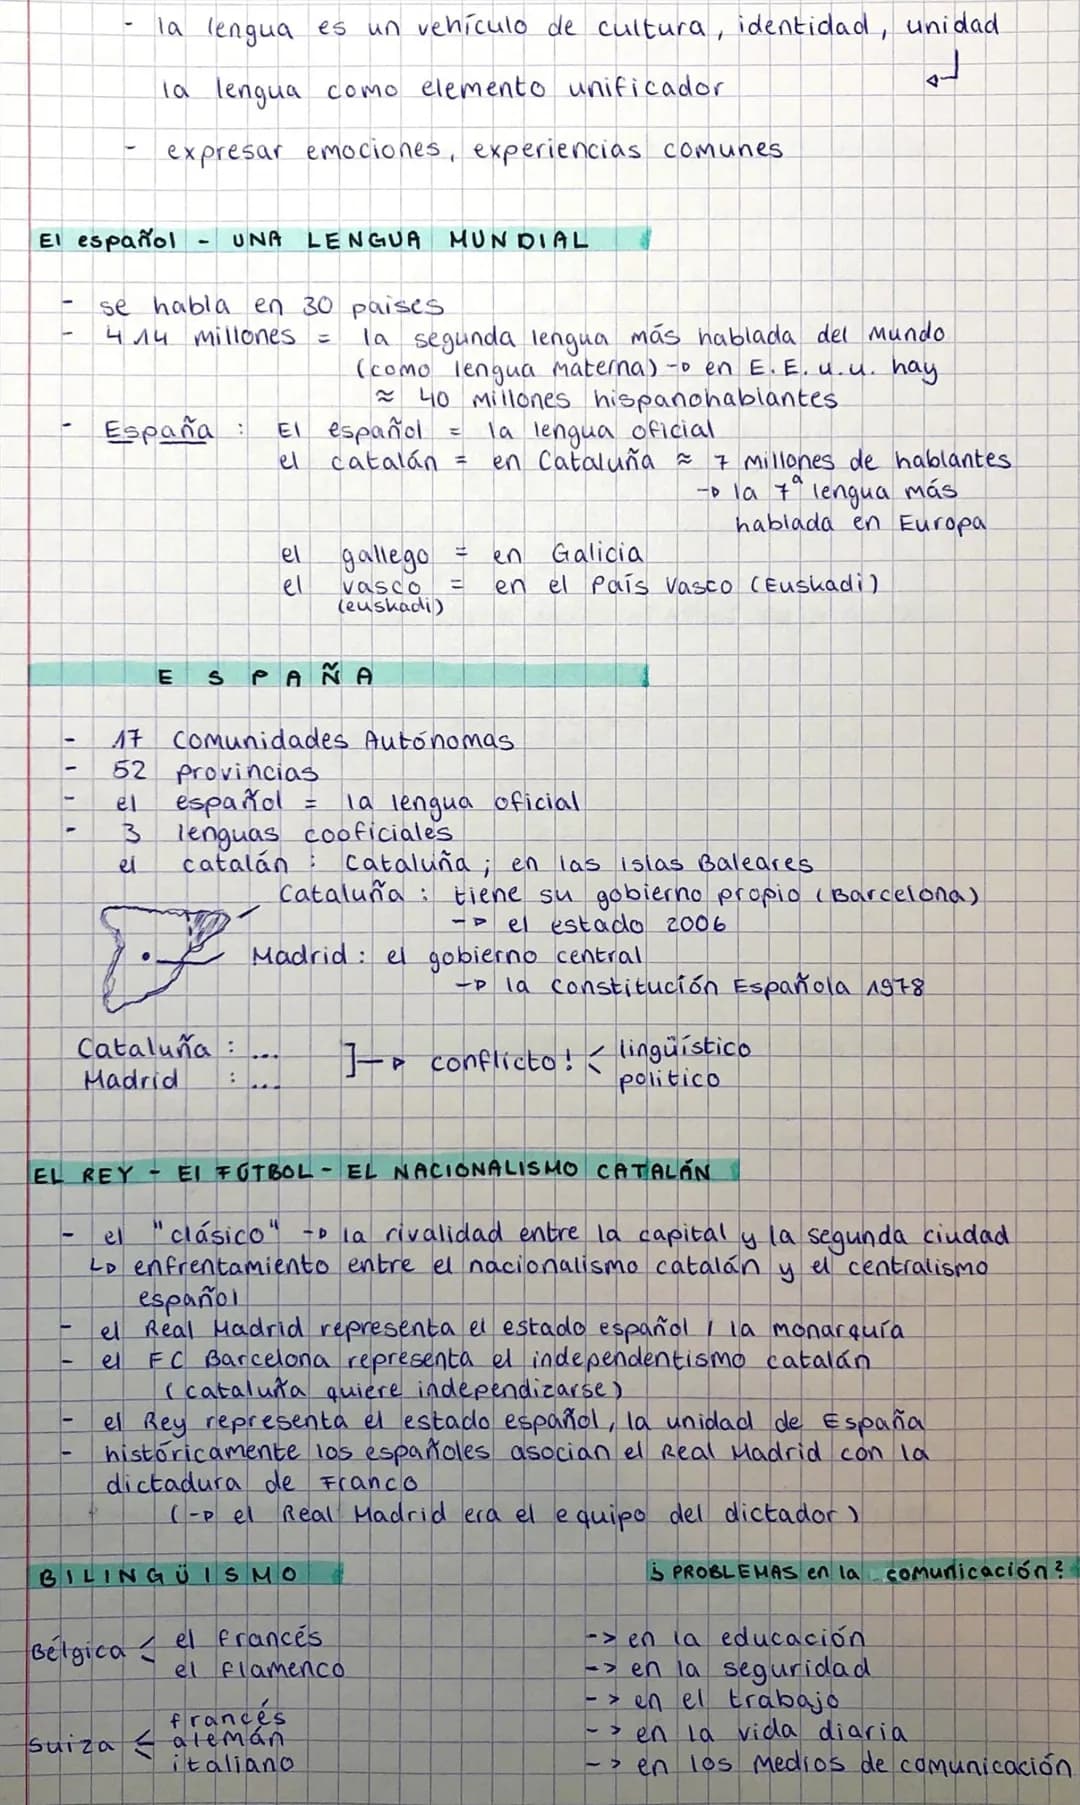 - la lengua es un vehículo de cultura, identidad, unidad
la lengua como elemento unificador
- expresar emociones, experiencias comunes
El español - UNA LENGUA MUNDIAL
- se habla en 30 paises
- 414 millones = la segunda lengua más hablada del mundo
(como lengua materna) -> en E.E.u.u. hay
≈ 40 millones hispanohablantes
- España : El español = la lengua oficial
el catalán = en Cataluña ≈ 7 millones de hablantes
-> la 7ª lengua más
hablada en Europa
el gallego = en Galicia
el vasco = en el País Vasco (Euskadi)
(euskadi)
ESPAÑA
- 17 Comunidades Autónomas
- 52 provincias
- el español = la lengua oficial
- 3 lenguas cooficiales
el catalán : Cataluña ; en las islas Baleares
Cataluña : tiene su gobierno propio (Barcelona)
-> el estado 2006
Madrid : el gobierno central
-> la Constitución Española 1978
Cataluña : ... ]-> conflicto! < lingüístico
Madrid : ... político
EL REY - El FÚTBOL - EL NACIONALISMO CATALÁN
- el "clásico" -> la rivalidad entre la capital y la segunda ciudad
-> enfrentamiento entre el nacionalismo catalán y el centralismo
español
- el Real Madrid representa el estado español / la monarquía
- el FC Barcelona representa el independentismo catalán
(cataluña quiere independizarse)
- el Rey representa el estado español, la unidad de España
- históricamente los españoles asocian el Real Madrid con la
dictadura de Franco
(-> el Real Madrid era el equipo del dictador)
BILINGÜISMO
Bélgica < el francés
el flamenco
Suiza < francés
alemán
italiano
¿ PROBLEMAS en la comunicación?
-> en la educación
-> en la seguridad
-> en el trabajo
-> en la vida diaria
-> en los medios de comunicación